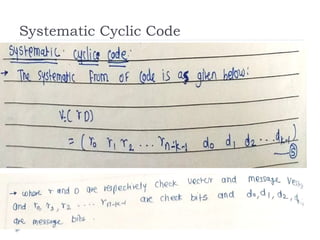 Systematic Cyclic Code
Systematic cyclic code:
→ The systematic from of code is as given below:
V=( r D)
= ( r₀ r₁ r₂ ... rₙ₋ₖ₋₁ d₀ d₁ d₂ ... dₖ₋₁)
→ where r and D are respectively check vector and message
and r₀ r₁, r₂ .... rₙ₋ₖ₋₁ are check bits and d₀, d₁, d₂,
are message bits.